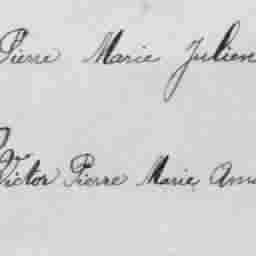 Pierre Marie Julien
Victor Pierre Marie